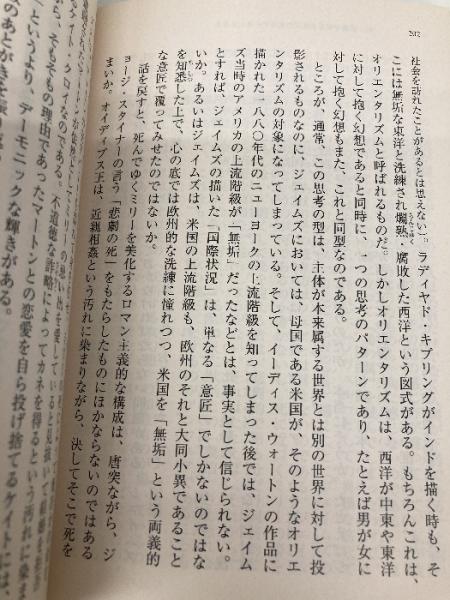 202
社会を訪れたことがあるとは思えない)。ラディヤド・キプリングがインドを描く時も、そ
こには無垢な東洋と洗練され爛熟、腐敗した西洋という図式がある。もちろんこれは、
オリエンタリズムと呼ばれるものだ。しかしオリエンタリズムは、西洋が中東や東洋
に対して抱く幻想であると同時に、一つの思考のパターンであり、たとえば男が女に
対して抱く幻想もまた、これと同型なのである。
ところが、通常、この思考の型は、主体が本来属する世界とは別の世界に対して投
影されるものなのに、ジェイムズにおいては、母国である米国が、そのようなオリエ
ンタリズムの対象になってしまっている。そして、イーディス・ウォートンの作品に
描かれた一八八〇年代のニューヨークの上流階級を知ってしまった後では、ジェイム
ズ当時のアメリカの上流階級が「無垢」だったなどとは、事実として信じられない。
とすれば、ジェイムズの描いた「国際状況」は、単なる「意匠」でしかないのではな
いか。あるいはジェイムズは、米国の上流階級も、欧州のそれと大同小異であること
を知悉した上で、心の底では欧州的な洗練に憧れつつ、米国を「無垢」という両義的
な意匠で覆ってみせたのではないか。
話を戻すと、死んでゆくミリーを美化するロマン主義的な構成は、唐突ながら、ジ
ョージ・スタイナーの言う「悲劇の死」をもたらしたものにほかならないのではある
まいか。オイディプス王は、近親相姦という汚れに染まりながら、決してそこで死を
ケイト・クロイなのである。不道徳な詐略によってカネを得るという汚れに染ま
ら、そもそもの理由であったマートンとの恋愛を自ら投げ捨てるケ
というより、デーモニックな輝きがある。